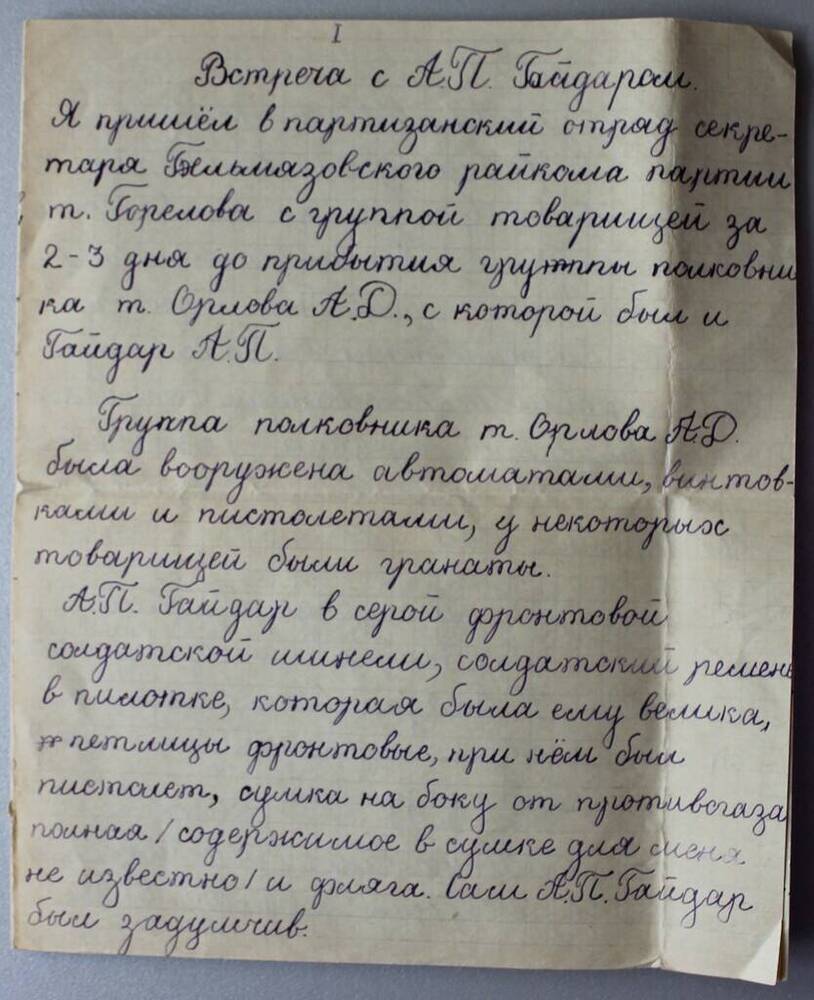 I
Встреча с А.П. Гайдаром.
Я пришёл в партизанский отряд секре-
таря Гельмязовского райкома партии
т. Горелова с группой товарищей за
2-3 дня до прибытия группы полковни
ка т. Орлова А.Д., с которой был и
Гайдар А.П.
Группа полковника т. Орлова А.Д.
была вооружена автоматами, винтов-
ками и пистолетами, у некоторых
товарищей были гранаты.
А.П. Гайдар в серой фронтовой
солдатской шинели, солдатский ремень
в пилотке, которая была ему велика,
петлицы фронтовые, при нём был
пистолет, сумка на боку от противогаза
полная /содержимое в сумке для меня
не известно/ и фляга. Сам А.П. Гайдар
был задумчив.